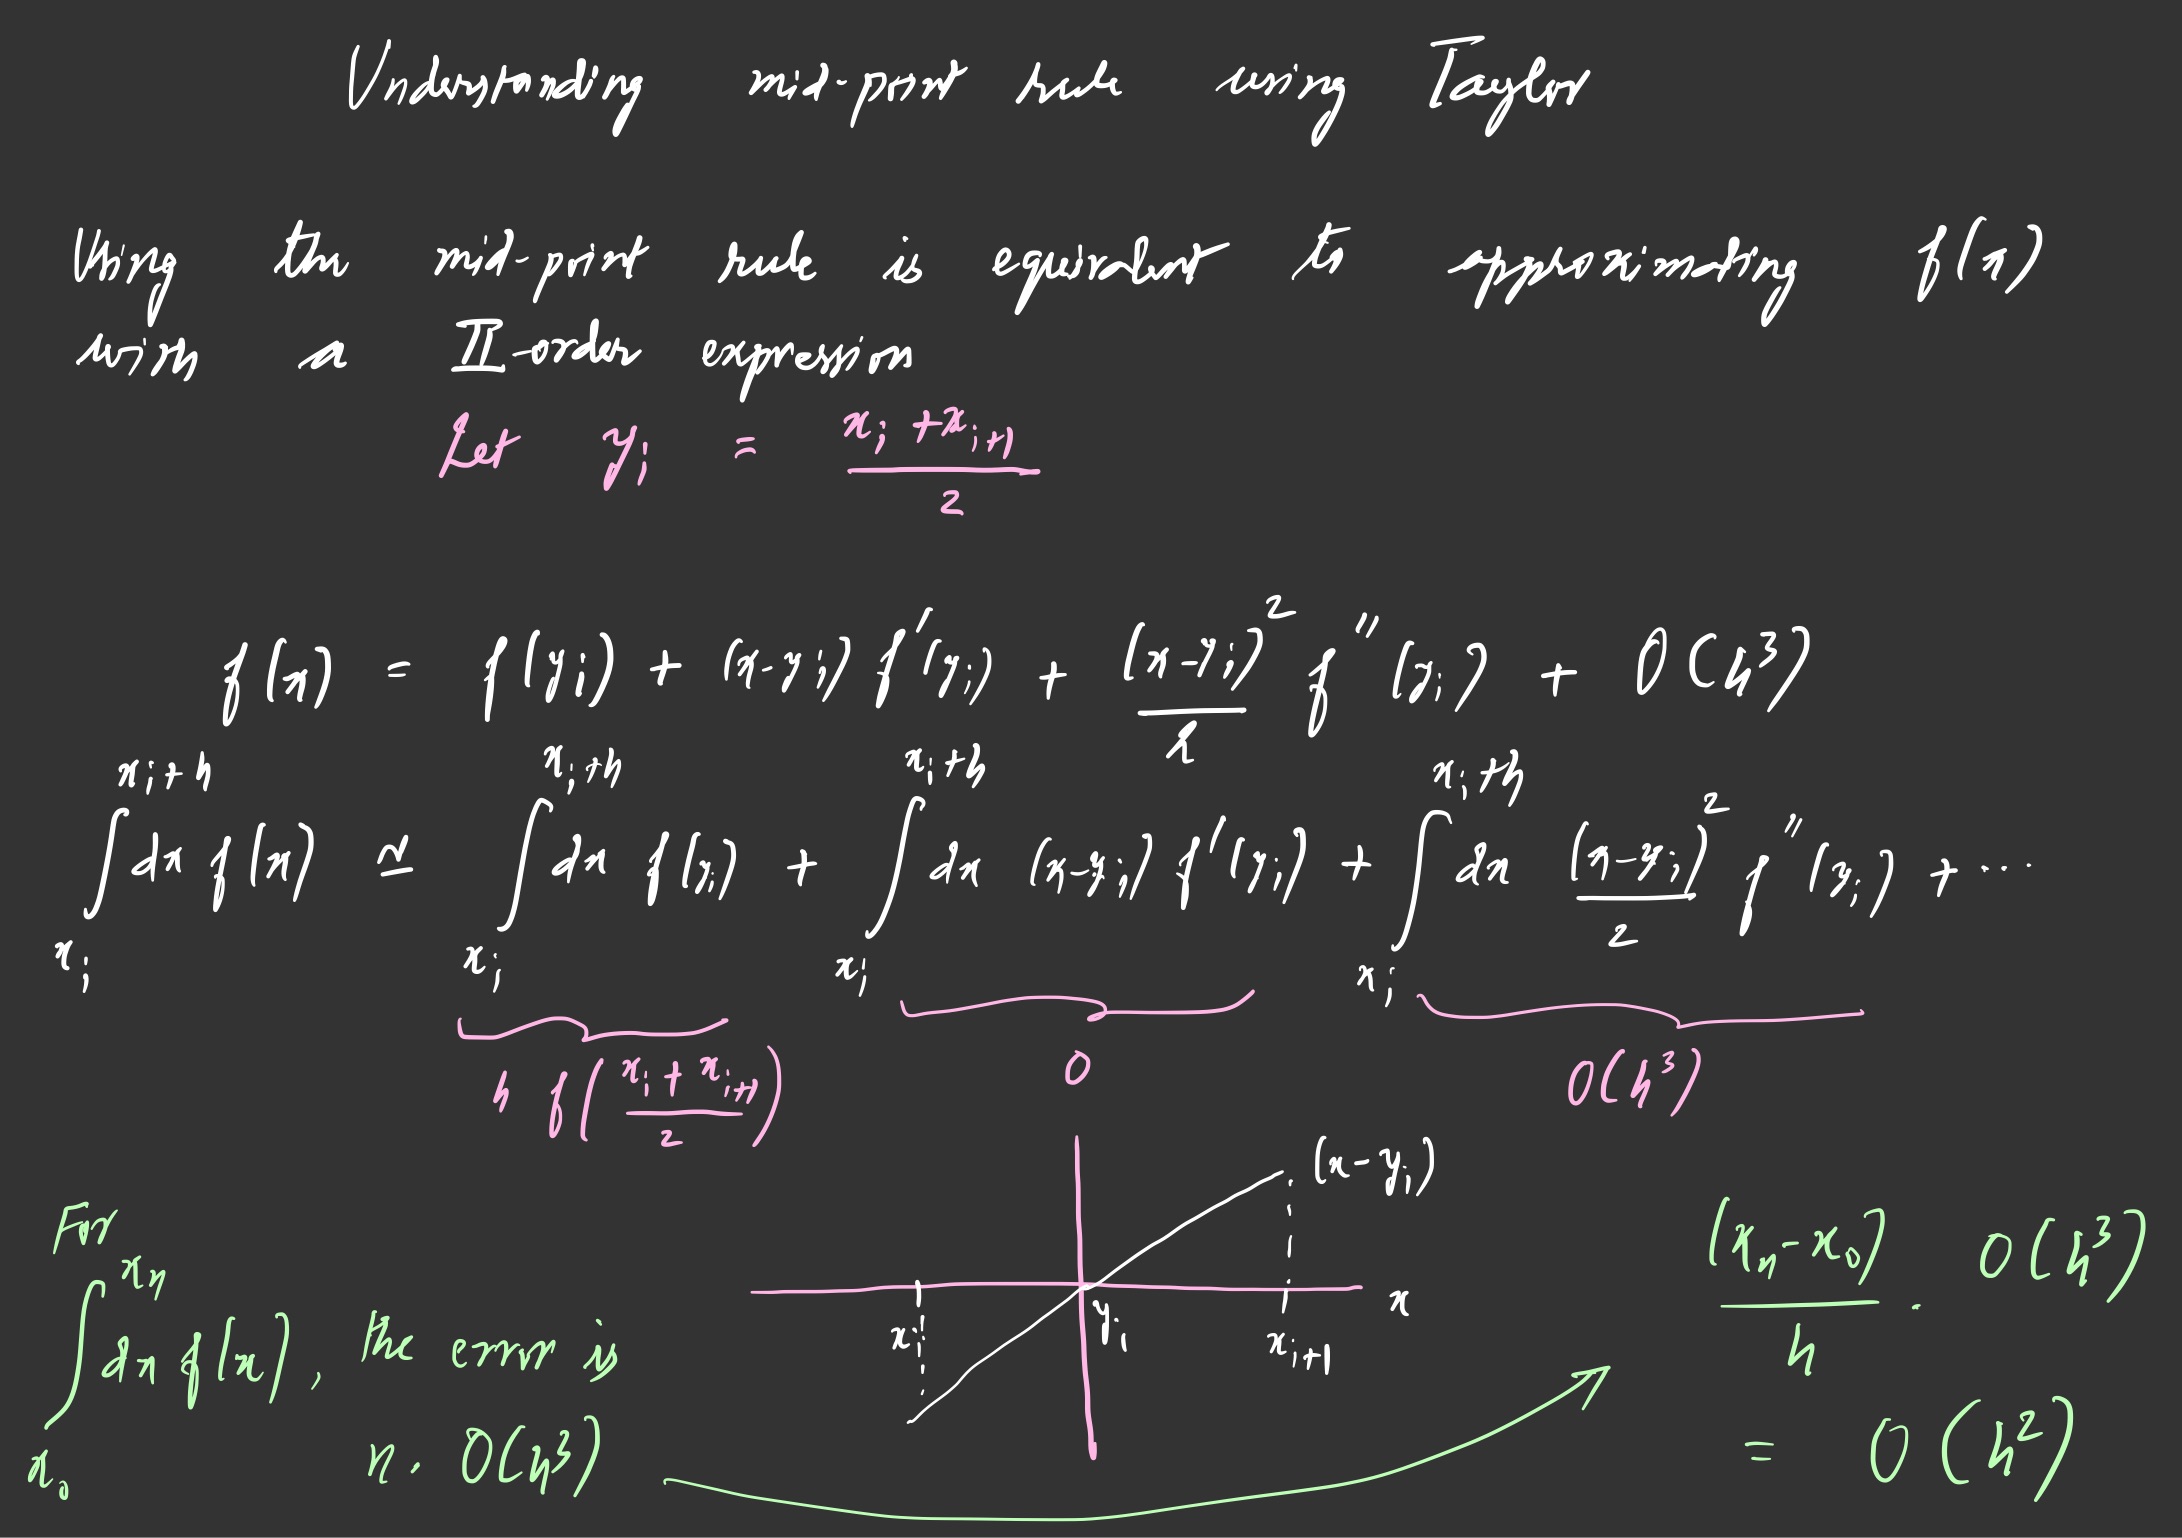 Understanding mid-point rule using Taylor
Using the mid-point rule is equivalent to approximating f(x)
with a II-order expression
Let y_i = (x_i + x_{i+1})/2
f(x) = f(y_i) + (x-y_i) f'(y_i) + (x-y_i)^2/2 f''(y_i) + O(h^3)
∫_{x_i}^{x_i+h} dx f(x) ≃ ∫_{x_i}^{x_i+h} dx f(y_i) + ∫_{x_i}^{x_i+h} dx (x-y_i) f'(y_i) + ∫_{x_i}^{x_i+h} dx (x-y_i)^2/2 f''(y_i) + ...
h f((x_i + x_{i+1})/2) 0 O(h^3)
(x-y_i)
x_i y_i x_{i+1} x
For
∫_{x_0}^{x_n} dx f(x), the error is
n. O(h^3)
(x_n-x_0)/h . O(h^3)
= O(h^2)